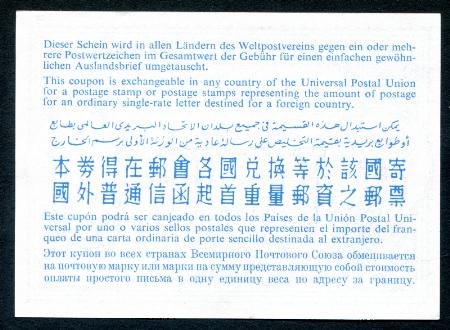 Dieser Schein wird in allen Ländern des Weltpostvereins gegen ein oder meh-
rere Postwertzeichen im Gesamtwert der Gebühr für einen einfachen gewöhn-
lichen Auslandsbrief umgetauscht.
This coupon is exchangeable in any country of the Universal Postal Union
for a postage stamp or postage stamps representing the amount of postage
for an ordinary single-rate letter destined for a foreign country.
يمكن استبدال هذه القسيمة في جميع بلدان الاتحاد البريدى العالمى بطابع
أو طوابع بريدية بقيمة التخليص على رسالة عادية من الوزنة الأولى برسم الخارج
本券得在郵會各國兑換等於該國寄
國外普通信函起首重量郵資之郵票
Este cupón podrá ser canjeado en todos los Países de la Unión Postal Uni-
versal por uno o varios sellos postales que representen el importe del fran-
queo de una carta ordinaria de porte sencillo destinada al extranjero.
Этот купон во всех странах Всемирного Почтового Союза обменивается
на почтовую марку или марки на сумму представляющую собой стоимость
оплаты простого письма в одну единицу веса по адресу за границу.